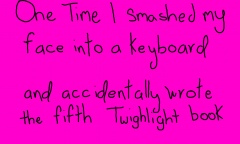 One Time I Smashed my
face into a Keyboard
and accidentally wrote
the fifth Twighlight book